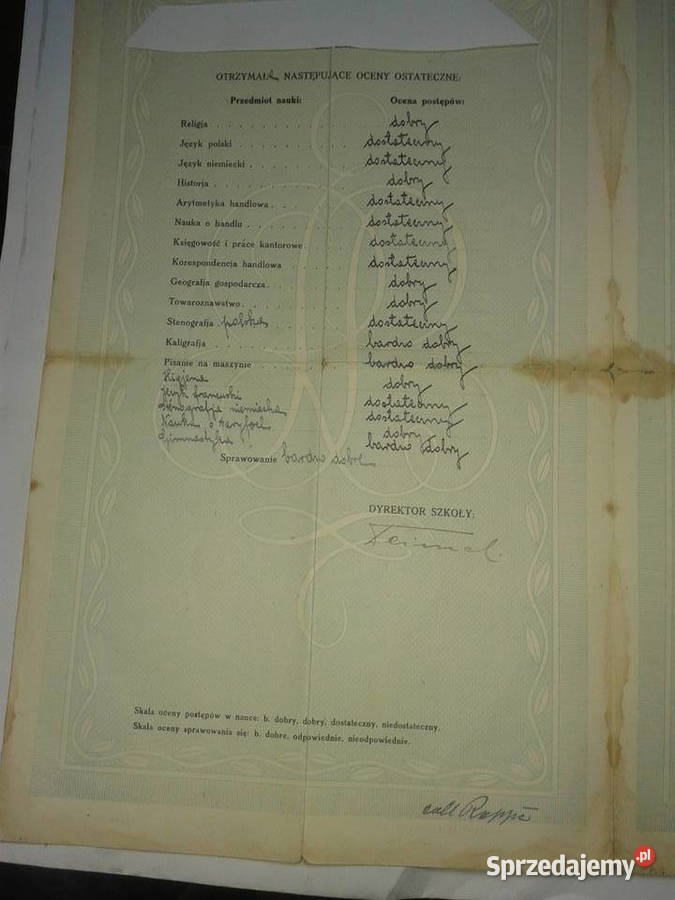 OTRZYMAŁA NASTĘPUJĄCE OCENY OSTATECZNE:
Przedmiot nauki: Ocena postępów:
Religja . . . . . . . . . . dobry
Język polski . . . . . . . . dostateczny
Język niemiecki . . . . . . . dostateczny
Historja . . . . . . . . . . dobry
Arytmetyka handlowa . . . . . dostateczny
Nauka o handlu . . . . . . . dostateczny
Księgowość i prace kantorowe . . . dostateczny
Korespondencja handlowa . . . . dostateczny
Geografja gospodarcza . . . . . dobry
Towaroznawstwo . . . . . . . dobry
Stenografja polska . . . . . dostateczny
Kaligrafja . . . . . . . . . bardzo dobry
Pisanie na maszynie . . . . . . bardzo dobry
Higjena dobry
Język francuski dostateczny
Stenografja niemiecka dostateczny
Nauka o taryfach dobry
Gimnastyka bardzo dobry
Sprawowanie bardzo dobre
DYREKTOR SZKOŁY:
Skala oceny postępów w nauce: b. dobry, dobry, dostateczny, niedostateczny.
Skala oceny sprawowania się: b. dobre, odpowiednie, nieodpowiednie.
Sprzedajemy.pl